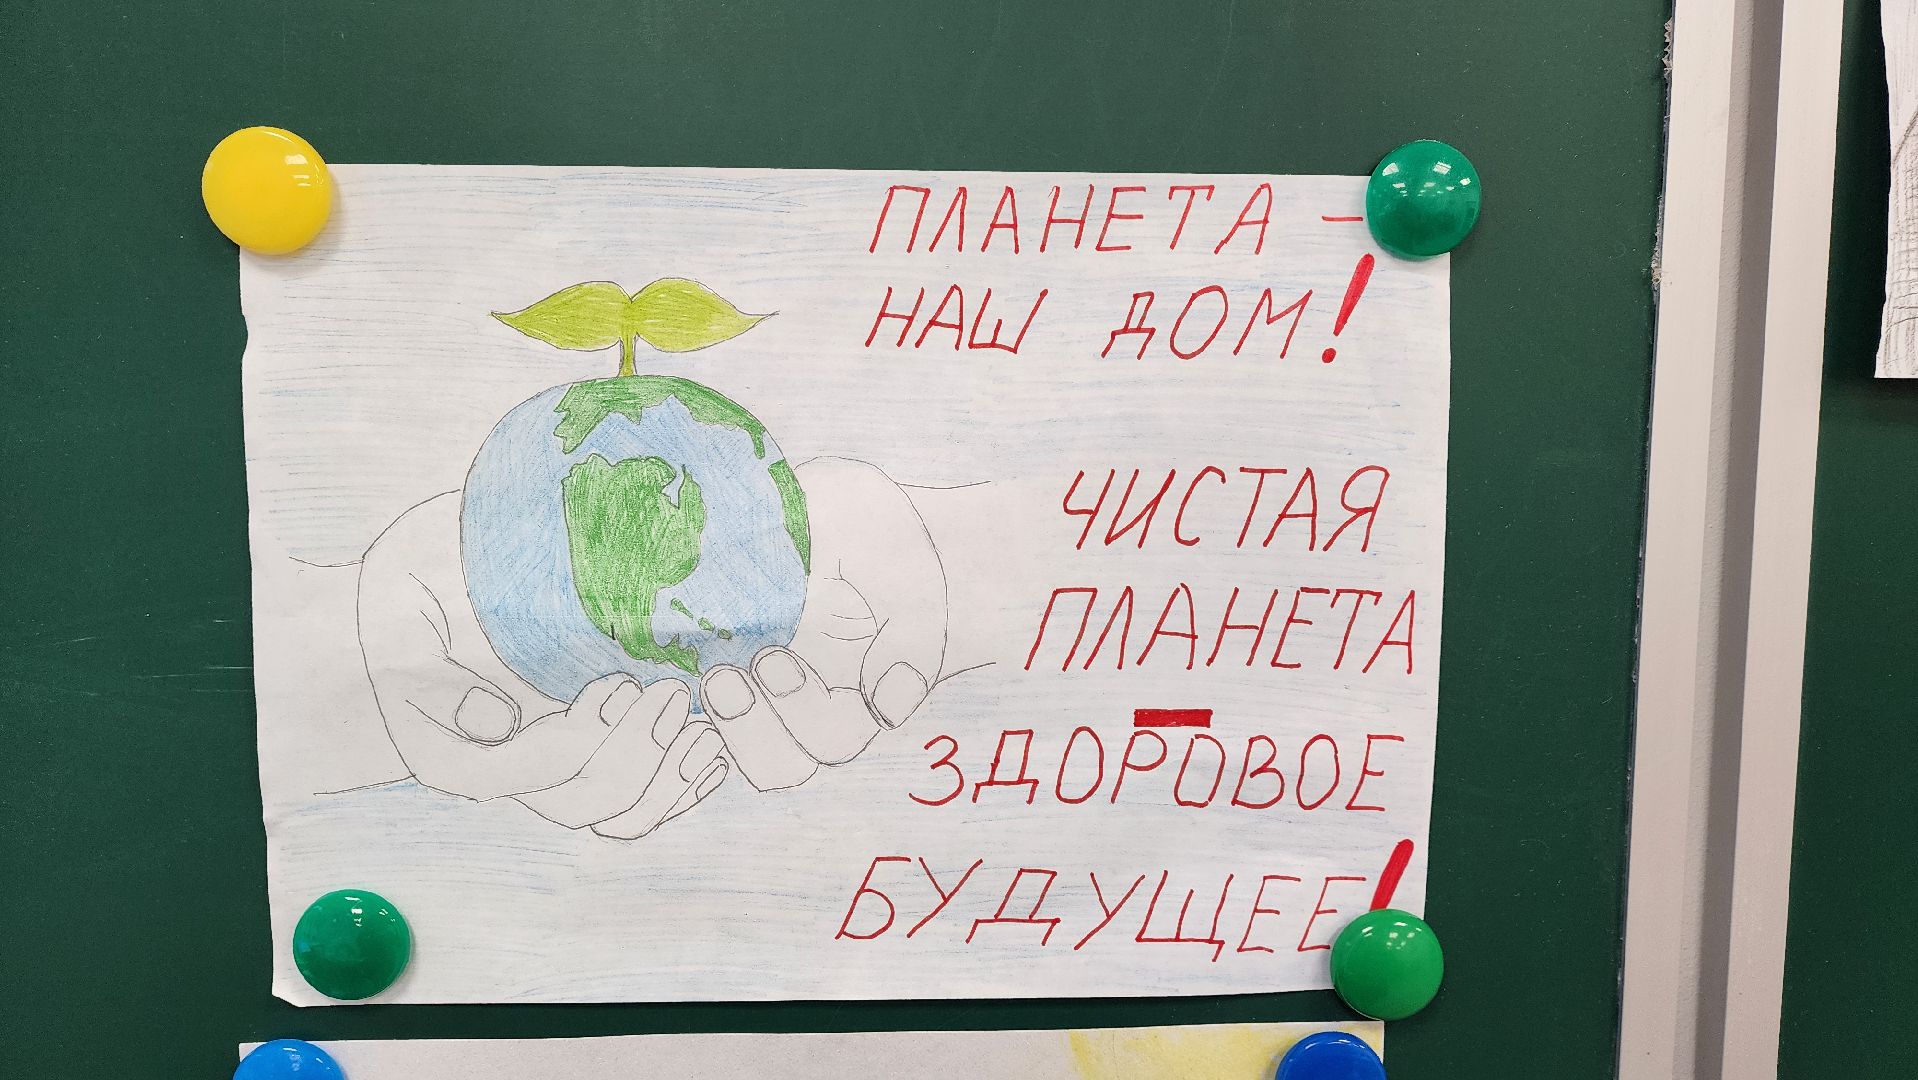 ПЛАНЕТА –
НАШ ДОМ!
ЧИСТАЯ
ПЛАНЕТА
—
ЗДОРОВОЕ
БУДУЩЕЕ!